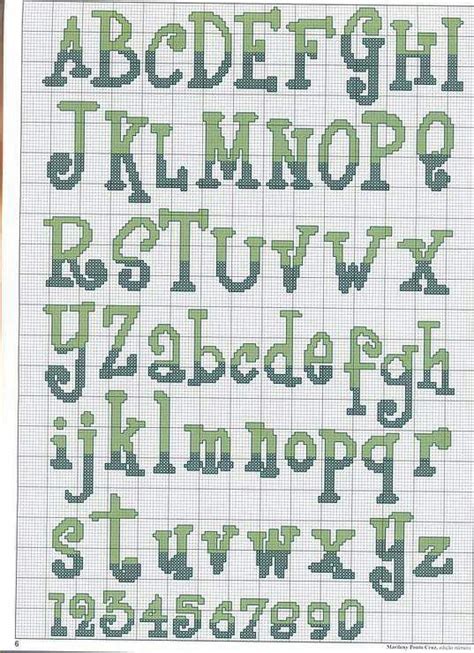 ABCDEFGHI
JKLMNOPQ
RSTUVWX
YZabcdefgh
ijklmnopqr
stuvwxyz
1234567890
6
Marileny Ponto Cruz, edição